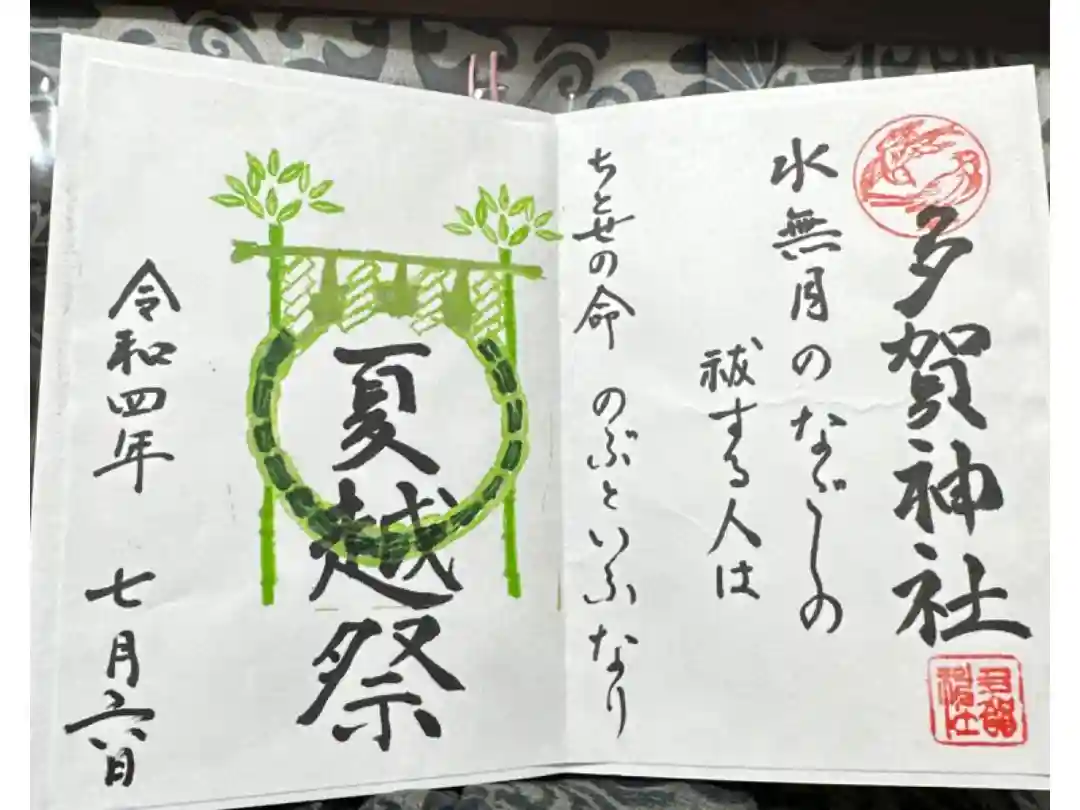 多賀神社
水無月のなごしの
祓する人は
ちとせの命 のぶといふなり
夏越祭
令和四年 七月六日
多賀神社